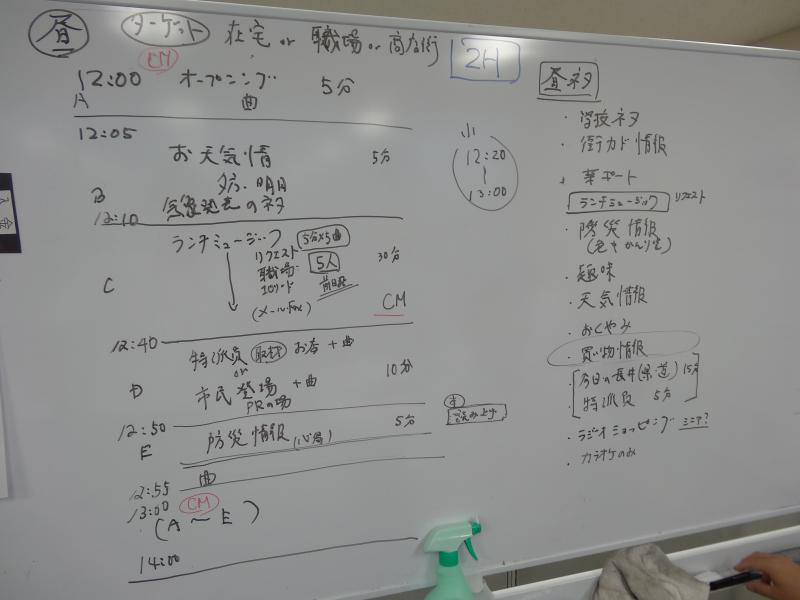 昼 ターゲット 在宅 or 職場 or 商店街
CM
2H
12:00 オープニング 5分
A 曲
12:05
お天気情 5分
夕方・明日
B の ネタ
12:10
ランチミュージック 5分×5曲
リクエスト 30分
職場 5人
C エピソード 前日〆
(メール・Fax)
CM
12:40
特派員 取材 お店 + 曲
or 10分
D 市民登場 + 曲
PRの場
12:50
E 防災情報 5分
12:55 曲
13:00 CM
(A 〜 E)
14:00
小
12:20
〜
13:00
読み上げ
昼ネタ
・学校ネタ
・街カド情報
・ポート
ランチミュージック リクエスト
・防災情報
・趣味
・天気情報
・おくやみ
・買い物情報
・今日の長井(県道) 15分
・特派員 5分
・ラジオショッピング ミニ?
・カラオケのみ